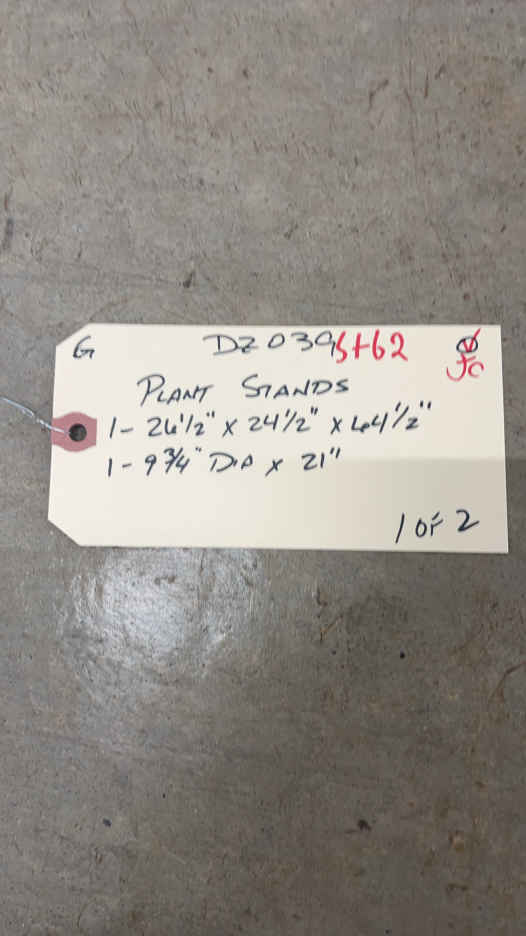 G DZ039 St62
JC
PLANT STANDS
1- 26 1/2" x 24 1/2" x 64 1/2"
1- 9 3/4" DIA x 21"
1 OF 2